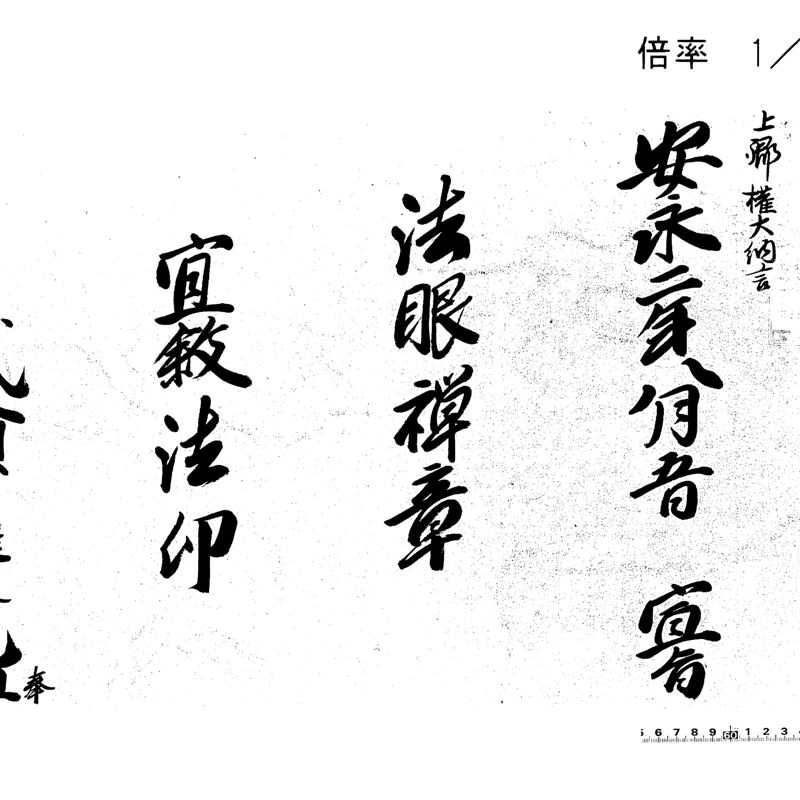 倍率 1/
上卿 權大納言
安永二年八月五日 宣旨
法眼禅章
宜敍法印
奉
5 6 7 8 9 60 1 2 3